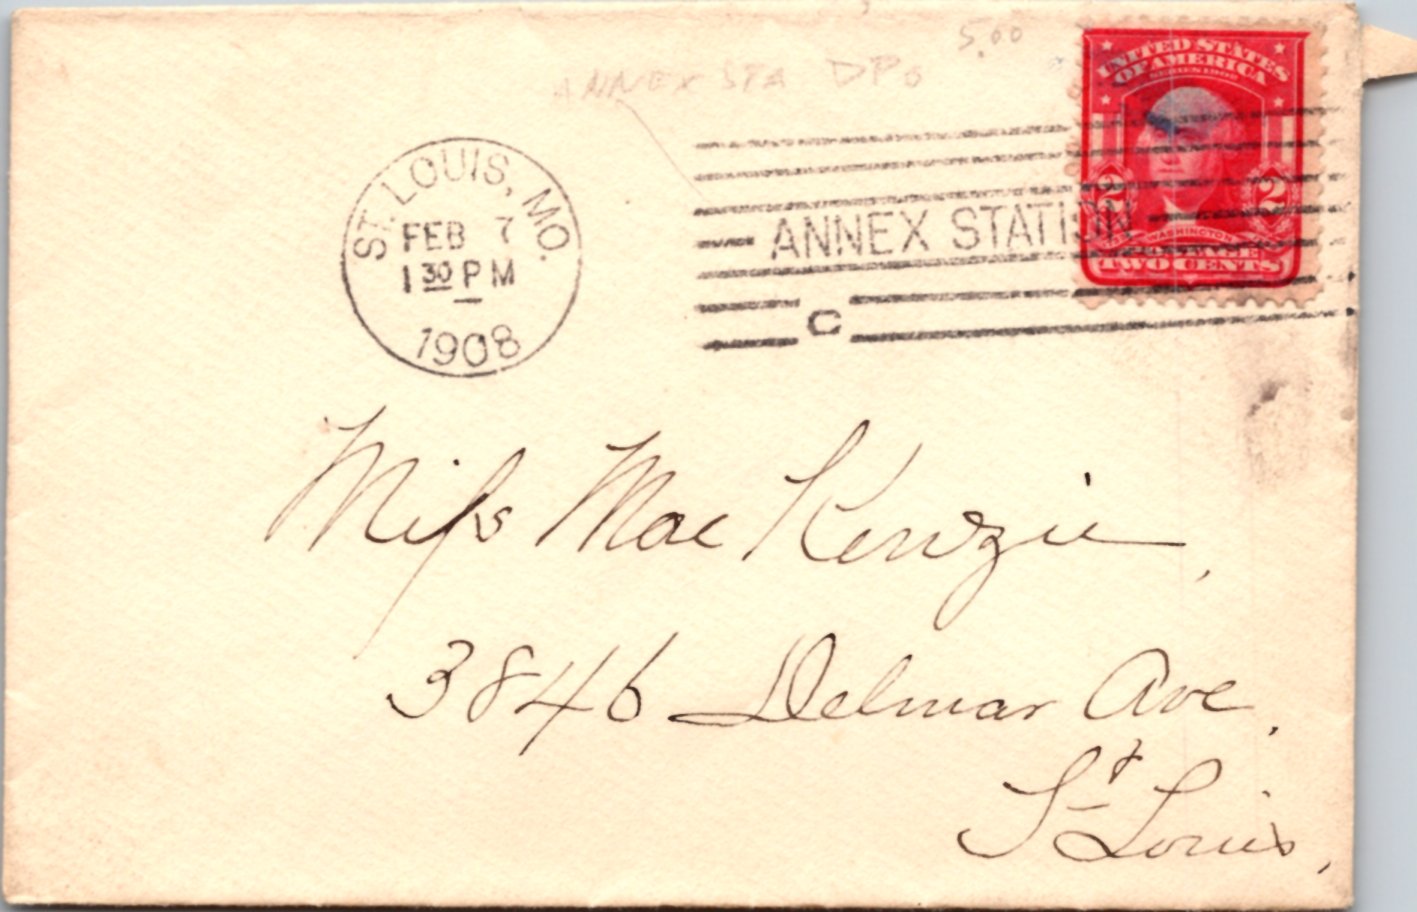 5.00
ANNEX STA DPO
UNITED STATES
OF AMERICA
SERIES 1902
ST. LOUIS, MO.
FEB 7
1 30 P M
1908
ANNEX STATION
C
2 2
WASHINGTON
TWO CENTS
Miss MacKenzie,
3846 Delmar Ave,
St Louis,